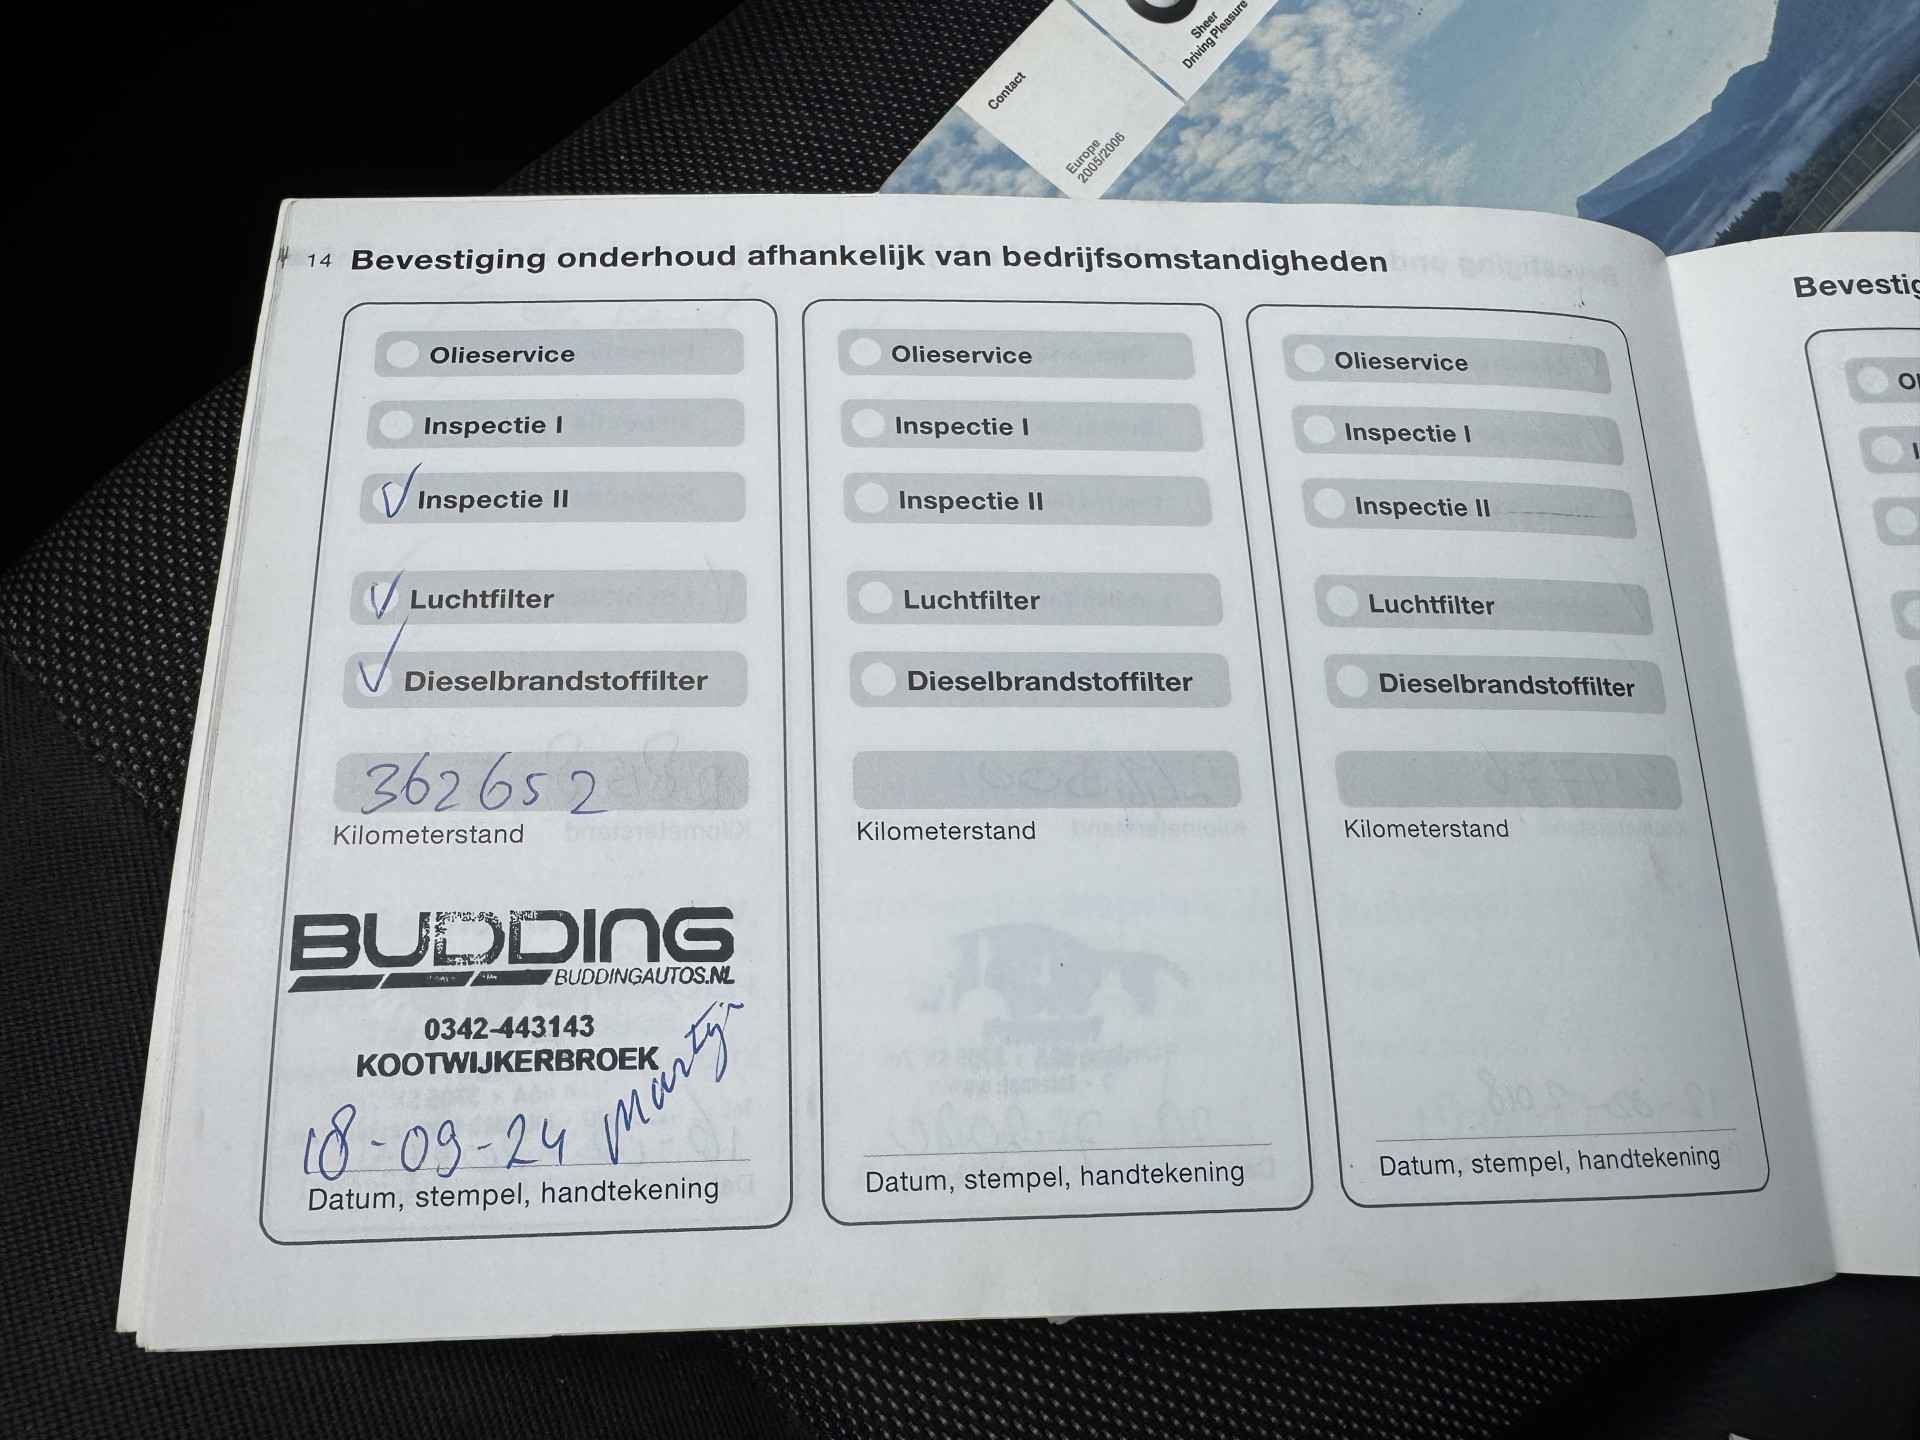 Sheer
Driving Pleasure
Contact
Europe
2005/2006
14 Bevestiging onderhoud afhankelijk van bedrijfsomstandigheden
Olieservice
Inspectie I
Inspectie II
Luchtfilter
Dieselbrandstoffilter
362652
Kilometerstand
BUDDING
BUDDINGAUTOS.NL
0342-443143
KOOTWIJKERBROEK
18-09-24 Martijn
Datum, stempel, handtekening
Olieservice
Inspectie I
Inspectie II
Luchtfilter
Dieselbrandstoffilter
Kilometerstand
Datum, stempel, handtekening
Olieservice
Inspectie I
Inspectie II
Luchtfilter
Dieselbrandstoffilter
Kilometerstand
Datum, stempel, handtekening